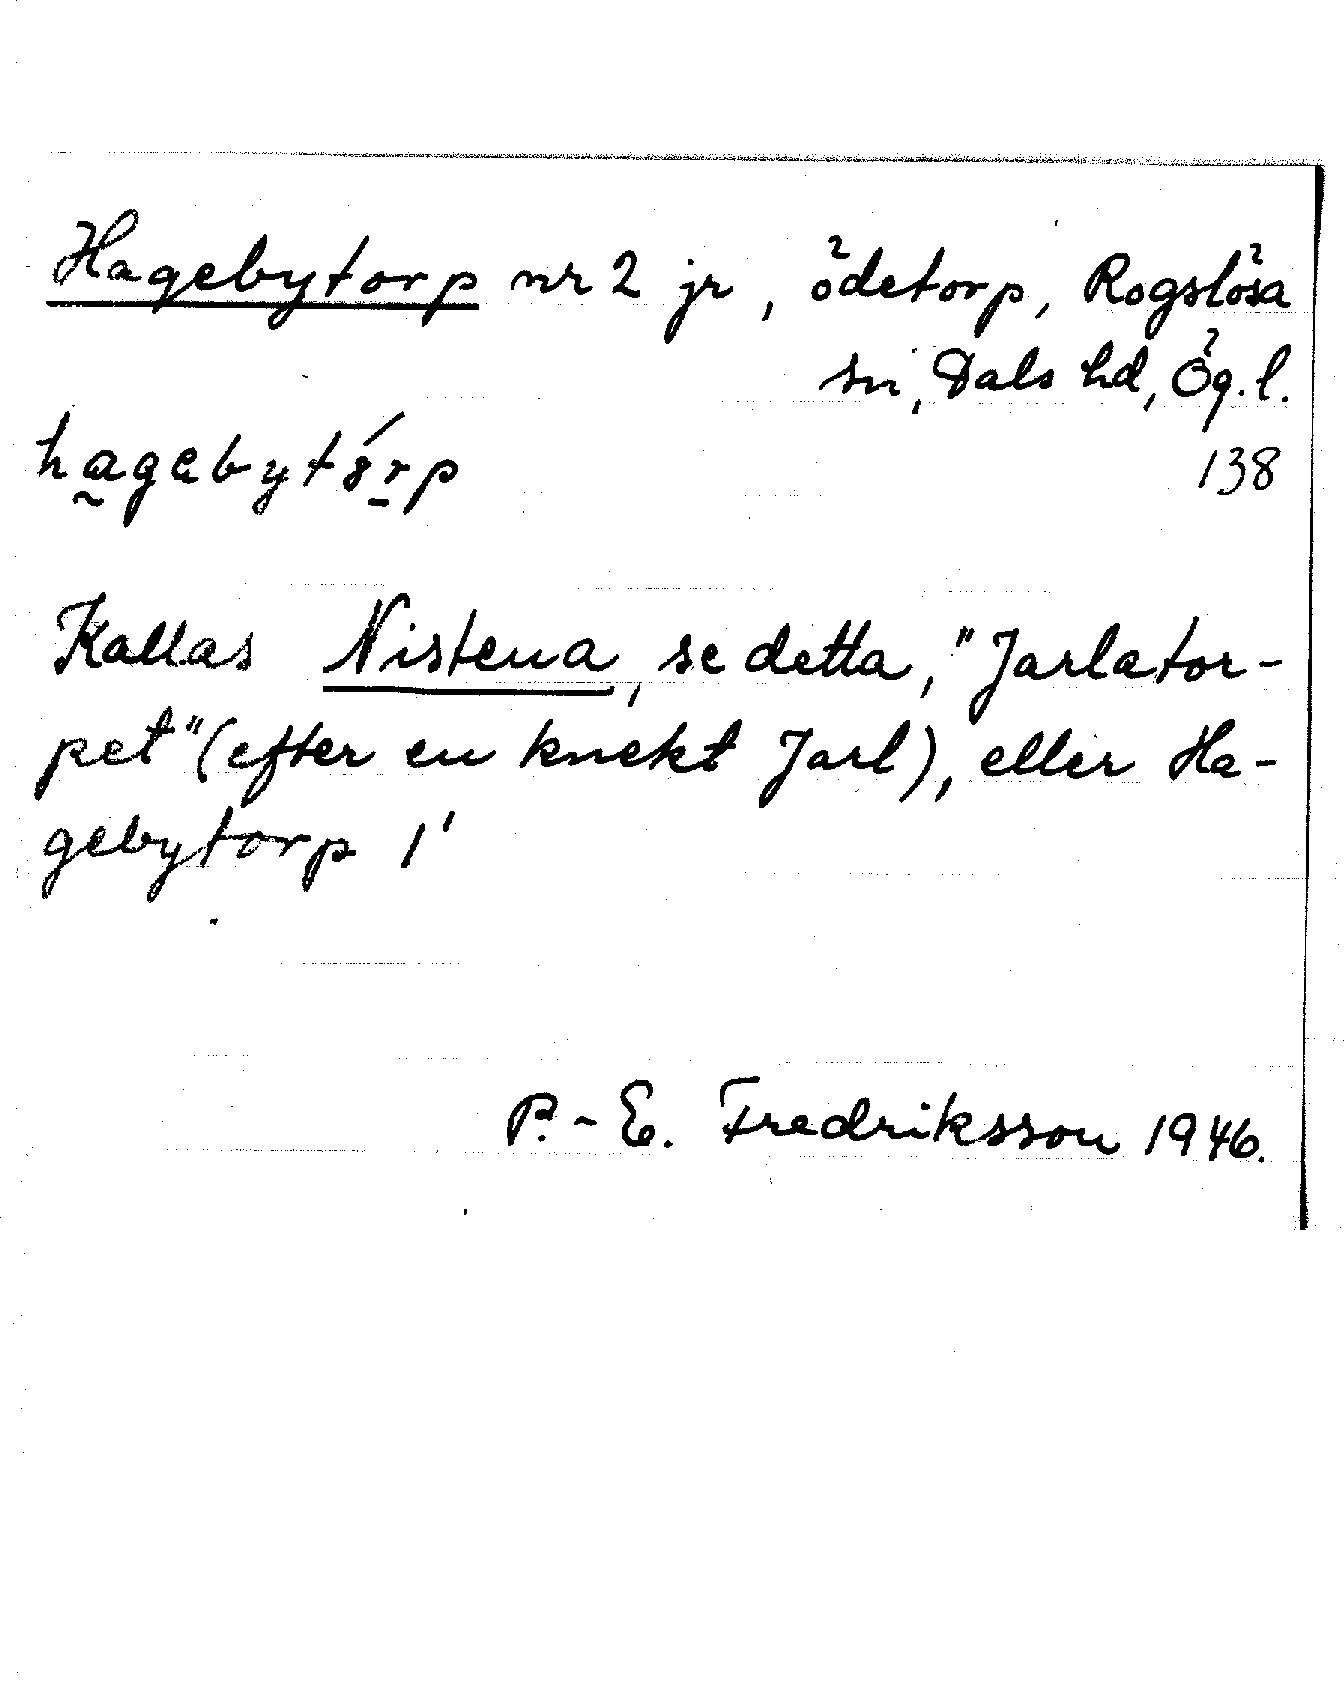 Hagebytorp nr 2 jr, ödetorp, Rogslösa
sn, Dals hd, Ög.l.
138
Kallas Nistena, se detta, "Jarlator-
pet" (efter en knekt Jarl), eller Ha-
gebytorp 1'
P.-E. Fredriksson 1946.